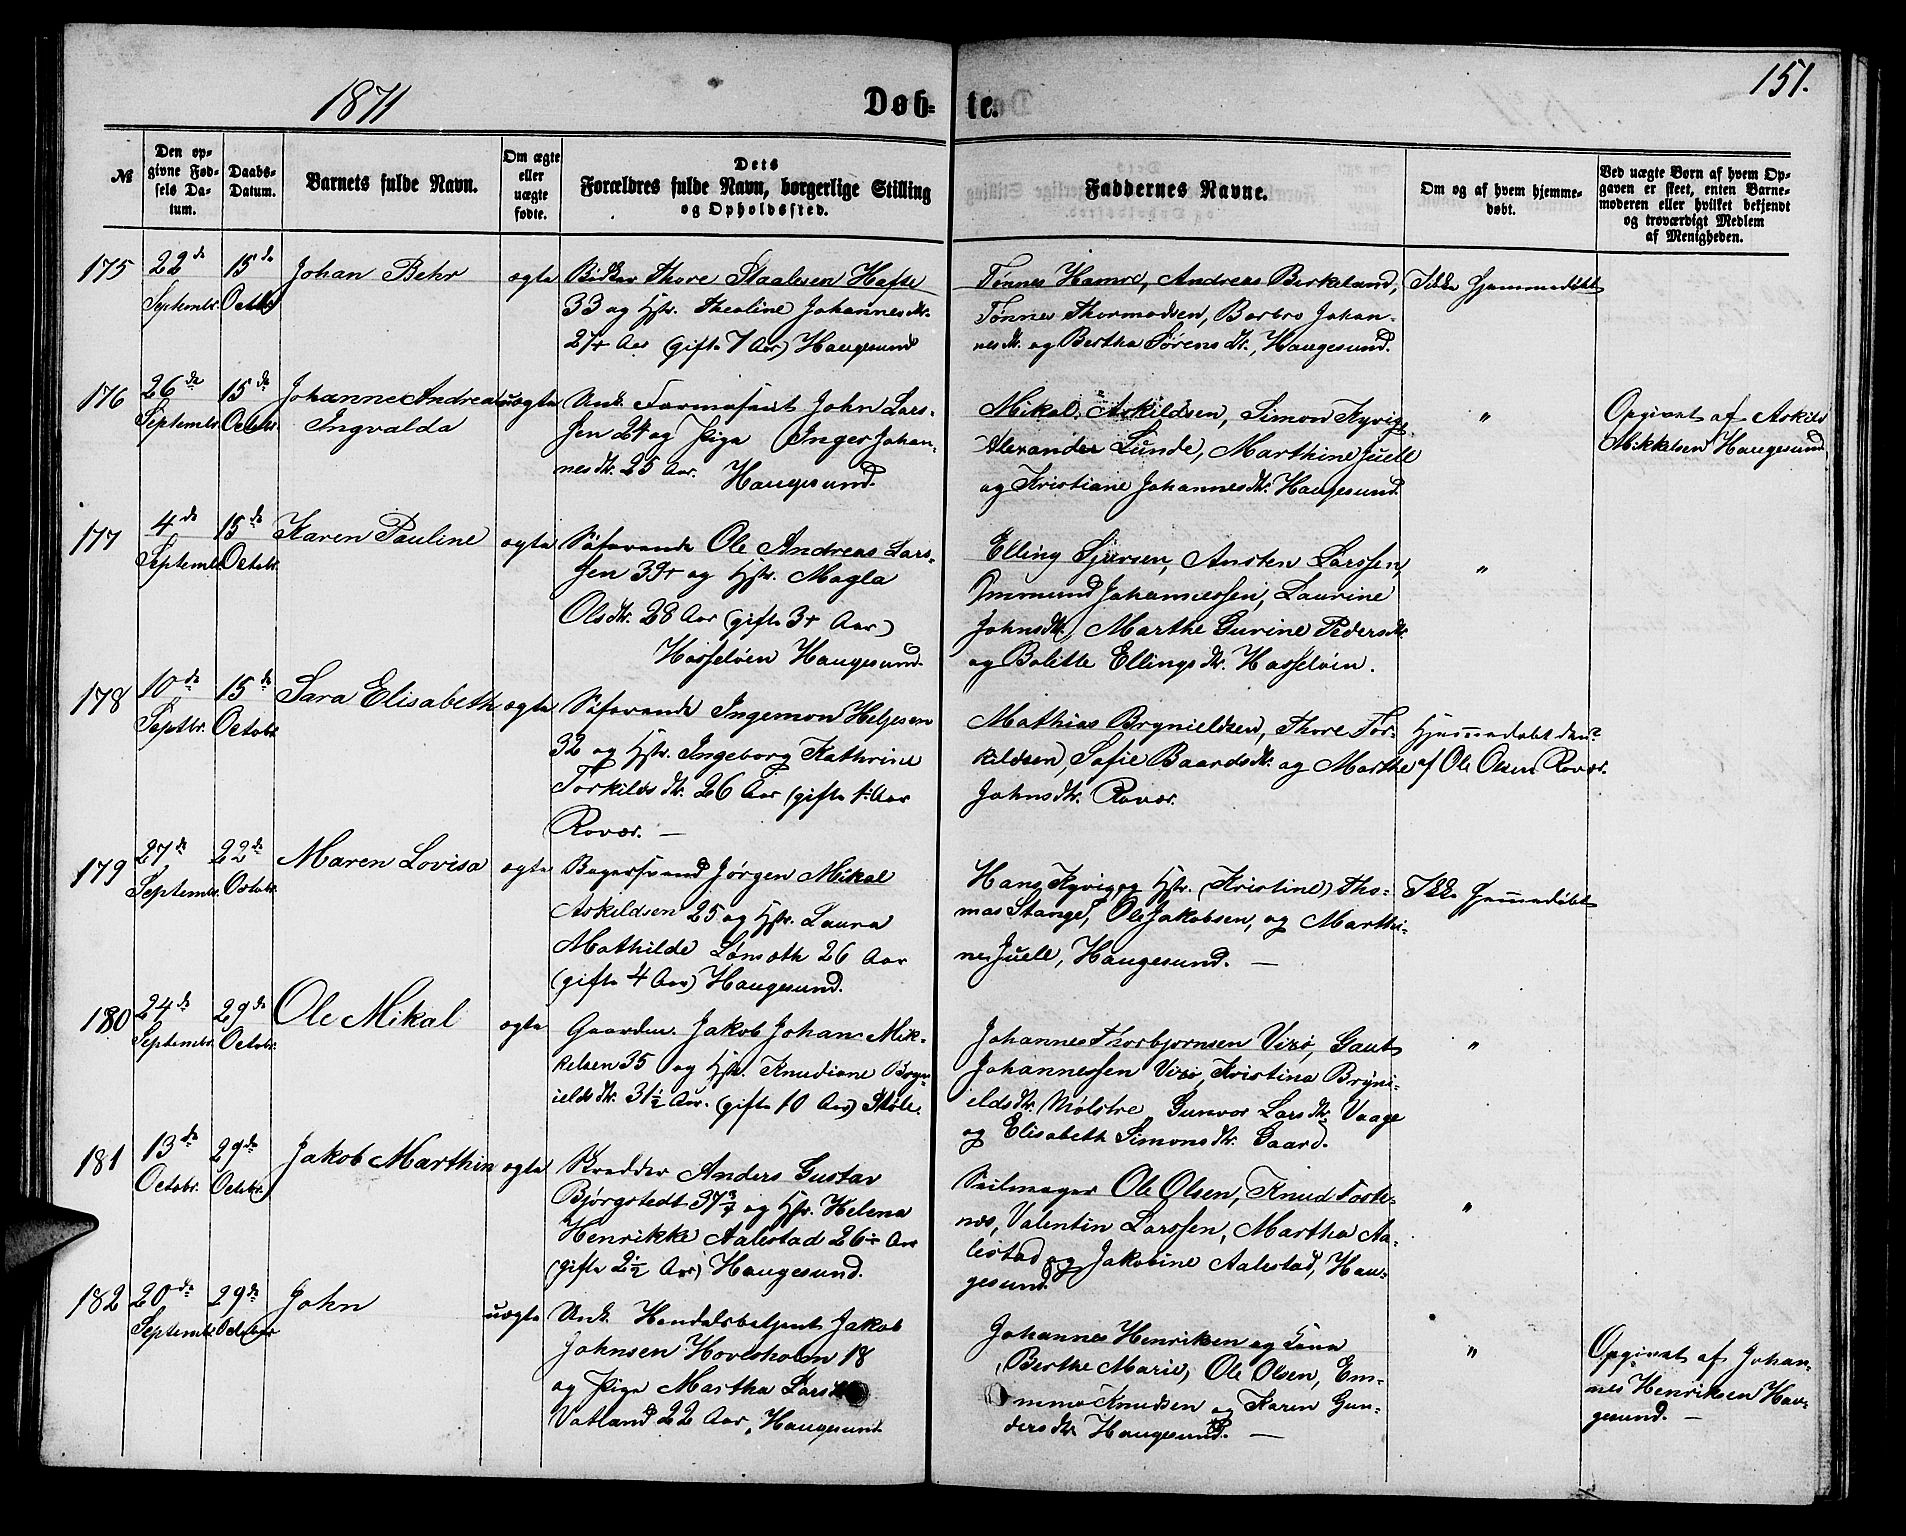 1871
Døb-
te.
151.
№
Den op-
givne Fød-
sels Da-
tum.
Daabs-
Datum.
Barnets fulde Navn.
Om ægte
eller
uægte
fødte.
Dets
Forældres fulde Navn, borgerlige Stilling
og Opholdssted.
Faddernes Navne.
Om og af hvem hjemme-
døbt.
Ved uægte Børn af hvem Op-
gaven er skeet, enten Barne-
moderen eller hvilket bekjendt
og troværdigt Medlem
af Menigheden.
175
22de
Septembr.
15de
Octobr.
Johan Behr
ægte
Bødker Thore Staalesen Hafte
33 og Hstr. Thealine Johannesdtr.
Aar (gifte 7 Aar) Haugesund
Tønnes Hamre, Andreas Birkeland,
Tønnes Thormodsen, Barbro Johan-
nesdtr. og Bertha Sørensdtr., Haugesund.
Ikke Hjemmedøbt
176
26de
Septembr.
15de
Octobr.
Johanne Andrea
Ingvalda
uægte
Unk. John Lars-
sen 24 og Pige Inger Johan-
nesdtr. 25 Aar. Haugesund.
Mikal Askildsen, Simon Kyvig,
Alexander Lunde, Marthine Juell
og Kristiane Johannesdtr. Haugesund.
"
Opgivet af Askild
Mikkelsen Haugesund
177
4de
Septembr.
15de
Octobr.
Karen Pauline
ægte
Søfarende Ole Andreas Lars-
sen og Hstr. Magla
Olsdtr. 28 Aar (gifte Aar)
Hasseløen Haugesund.
Elling Sjursen, Ansten Larssen,
Ommund Johannessen, Laurine
Johnsdtr, Marthe Gurine Pedersdtr.
og Bolitte Ellingsdtr. Hasseløen.
"
178
10de
Septbr.
15de
Octobr.
Sara Elisabeth
ægte
Søfarende Ingemon Heljesen
32 og Hstr. Ingeborg Kathrine
Torkildsdtr. 26 Aar (gifte 1 Aar
Røvær. —
Mathias Brynieldsen, Thore Tor-
kildsen, Sofie Baardsdtr. og Marthe
Johnsdtr. Røvær.
Hjemmedøbt
af Ole Olsen Røvær.
179
27de
Septembr.
22de
Octobr.
Maren Lovisa
ægte
Bagersvend Jørgen Mikal
Askildsen 25 og Hstr. Laura
Mathilde Lønsoth 26 Aar
(gifte 4 Aar) Haugesund.
Hans Kyvig og Hstr. (Kristine) Tho-
mas Stange, Ole Jakobsen, og Marthi-
ne Juell, Haugesund. —
Ikke Hjemmedøbt
180
24de
Septembr.
29de
Octobr.
Ole Mikal
ægte
Gaardm. Jakob Johan Mik-
kelsen 35 og Hstr. Knudiane Bryn-
ieldsdtr. 31½ Aar. (gifte 10 Aar)
Johannes Thorbjornsen Vixe, Gaut
Johannessen Vixe, Kristina Bryni-
eldsdtr. Mølstre, Gunvor Larsdtr. Vaage
og Elisabeth Simonsdtr. Gaard.
"
181
13de
Octobr.
29de
Octobr.
Jakob Marthin
ægte
Skrædder Anders Gustav
Bjørgstedt og Hstr. Helena
Henrikke Aalestad 26 Aar
(gifte 2½ Aar) Haugesund.
Seilmager Ole Olsen, Knud
Valentin Larssen, Martha Aa-
lestad og Jakobine Aalestad, Hau-
gesund.
"
182
20de
Septembr.
29de
October
John
uægte
Unk. Handelsbetjent Jakob
Johnsen Hovesholm 18
og Pige Martha Larsdtr
Vatland 22 Aar, Haugesund
Johannes Henriksen og Kone
Berthe Marie, Ole Olsen, Em-
ma Knudsen og Karen Gun-
dersdtr. Haugesund. —
"
Opgivet af Johan-
nes Henriksen Hau-
gesund. —